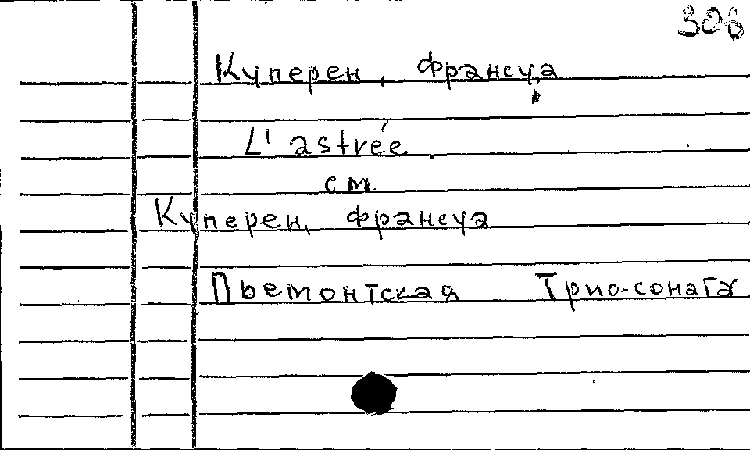 306
Куперен, Франсуа
L'astrée
см
Куперен, Франсуа
Пьемонтская Трио-соната